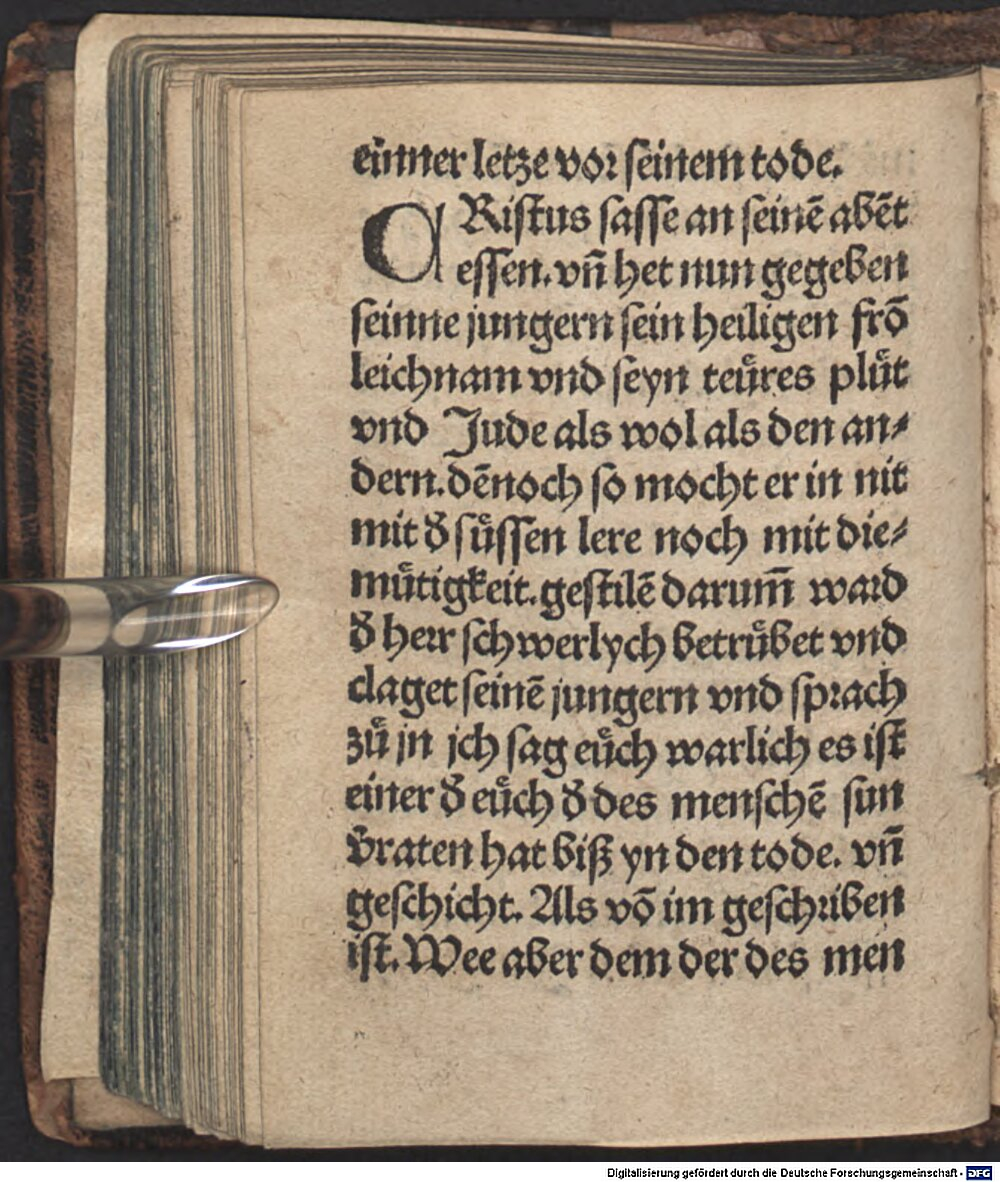 einner letze vor seinem tode.
CRistus sasse an seinē abēt
essen. vñ het nun gegeben
seinne jungern sein heiligen frō
leichnam vnd seyn teůres plůt
vnd Jude als wol als den an⸗
dern. dēnoch so mocht er in nit
mit d̄ sůssen lere noch mit die⸗
můtigkeit. gestilē darum̄ ward
d̄ herr schwerlych betrůbet vnd
claget seinē jungern vnd sprach
zů jn jch sag eůch warlich es ist
einer d̄ eůch d̄ des menschē sun
v̄raten hat biß yn den tode. vñ
geschicht. Als vō im geschriben
ist. Wee aber dem der des men
Digitalisierung gefördert durch die Deutsche Forschungsgemeinschaft - DFG